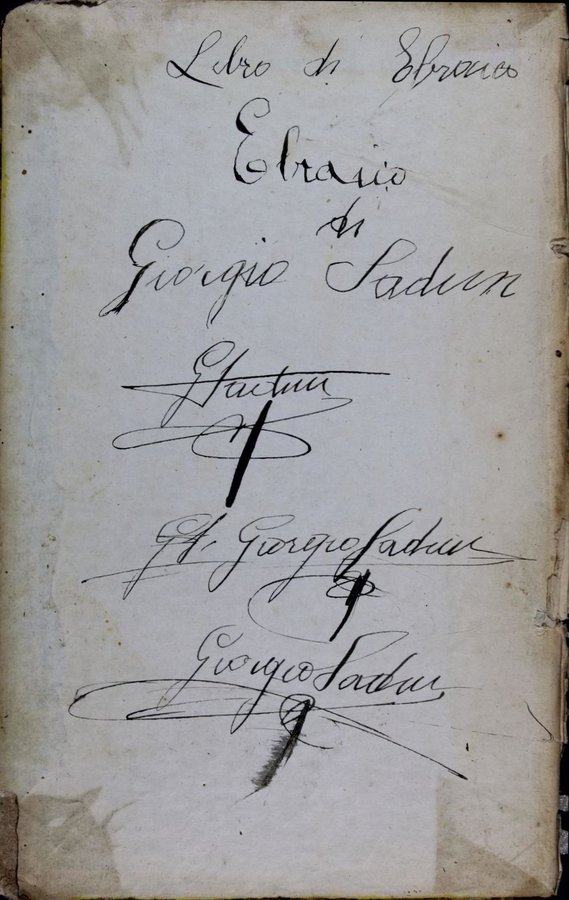 Libro di Ebraico
Ebraico
di
Giorgio Sadun
GSadun
GS. Giorgio Sadun
Giorgio Sadun